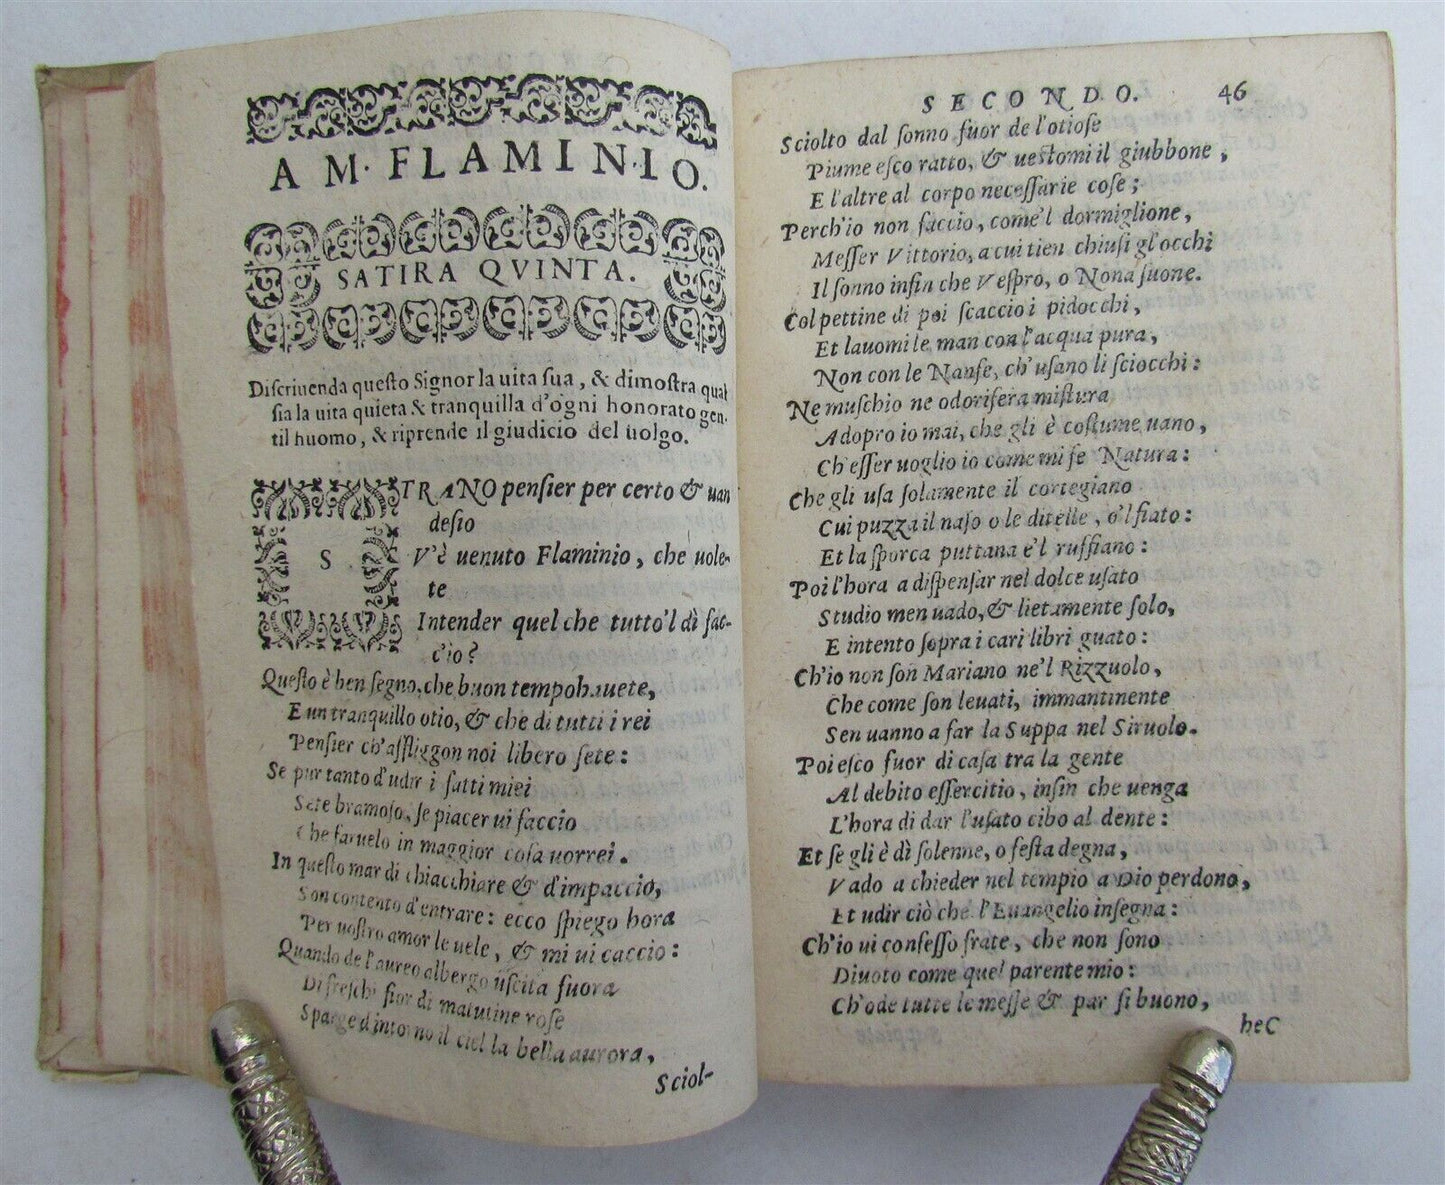 A M. FLAMINIO.
SATIRA QVINTA.
Discriuenda questo Signor la uita sua, & dimostra qual
sia la uita quieta & tranquilla d'ogni honorato gen-
til huomo, & riprende il giudicio del uolgo.
STRANO pensier per certo & uan
desio
V'è uenuto Flaminio, che uole-
te
Intender quel che tutto'l dì fac-
c'io?
Questo è ben segno, che buon tempo hauete,
E un tranquillo otio, & che di tutti i rei
Pensier ch'affliggon noi libero sete:
Se pur tanto d'udir i fatti miei
Sete bramoso, se piacer ui faccio
Che faruelo in maggior cosa uorrei.
In questo mar di chiacchiare & d'impaccio,
Son contento d'entrare: ecco spiego hora
Per uostro amor le uele, & mi ui caccio:
Quando de l'aureo albergo uscita fuora
Di freschi fior di matutine rose
Sparge d'intorno il ciel la bella aurora,
Sciol-
SECONDO. 46
Sciolto dal sonno fuor de l'otiose
Piume esco ratto, & uestomi il giubbone,
E l'altre al corpo necessarie cose;
Perch'io non faccio, come'l dormiglione,
Messer Vittorio, a cui tien chiusi gl'occhi
Il sonno insin che Vespro, o Nona suone.
Col pettine di poi scaccio i pidocchi,
Et lauomi le man con l'acqua pura,
Non con le Nanfe, ch'usano li sciocchi:
Ne muschio ne odorifera mistura
Adopro io mai, che gli è costume uano,
Ch'esser uoglio io come mi fe Natura:
Che gli usa solamente il cortegiano
Cui puzza il naso o le ditelle, o'l fiato:
Et la sporca puttana e'l ruffiano:
Poi l'hora a dispensar nel dolce usato
Studio men uado, & lietamente solo,
E intento sopra i cari libri guato:
Ch'io non son Mariano ne'l Rizzuolo,
Che come son leuati, immantinente
Sen uanno a far la Suppa nel Siruolo.
Poi esco fuor di casa tra la gente
Al debito essercitio, insin che uenga
L'hora di dar l'usato cibo al dente:
Et se gli è dì solenne, o festa degna,
Vado a chieder nel tempio a Dio perdono,
Et udir ciò che l'Euangelio insegna:
Ch'io ui confesso frate, che non sono
Diuoto come quel parente mio:
Ch'ode tutte le messe & par si buono,
heC